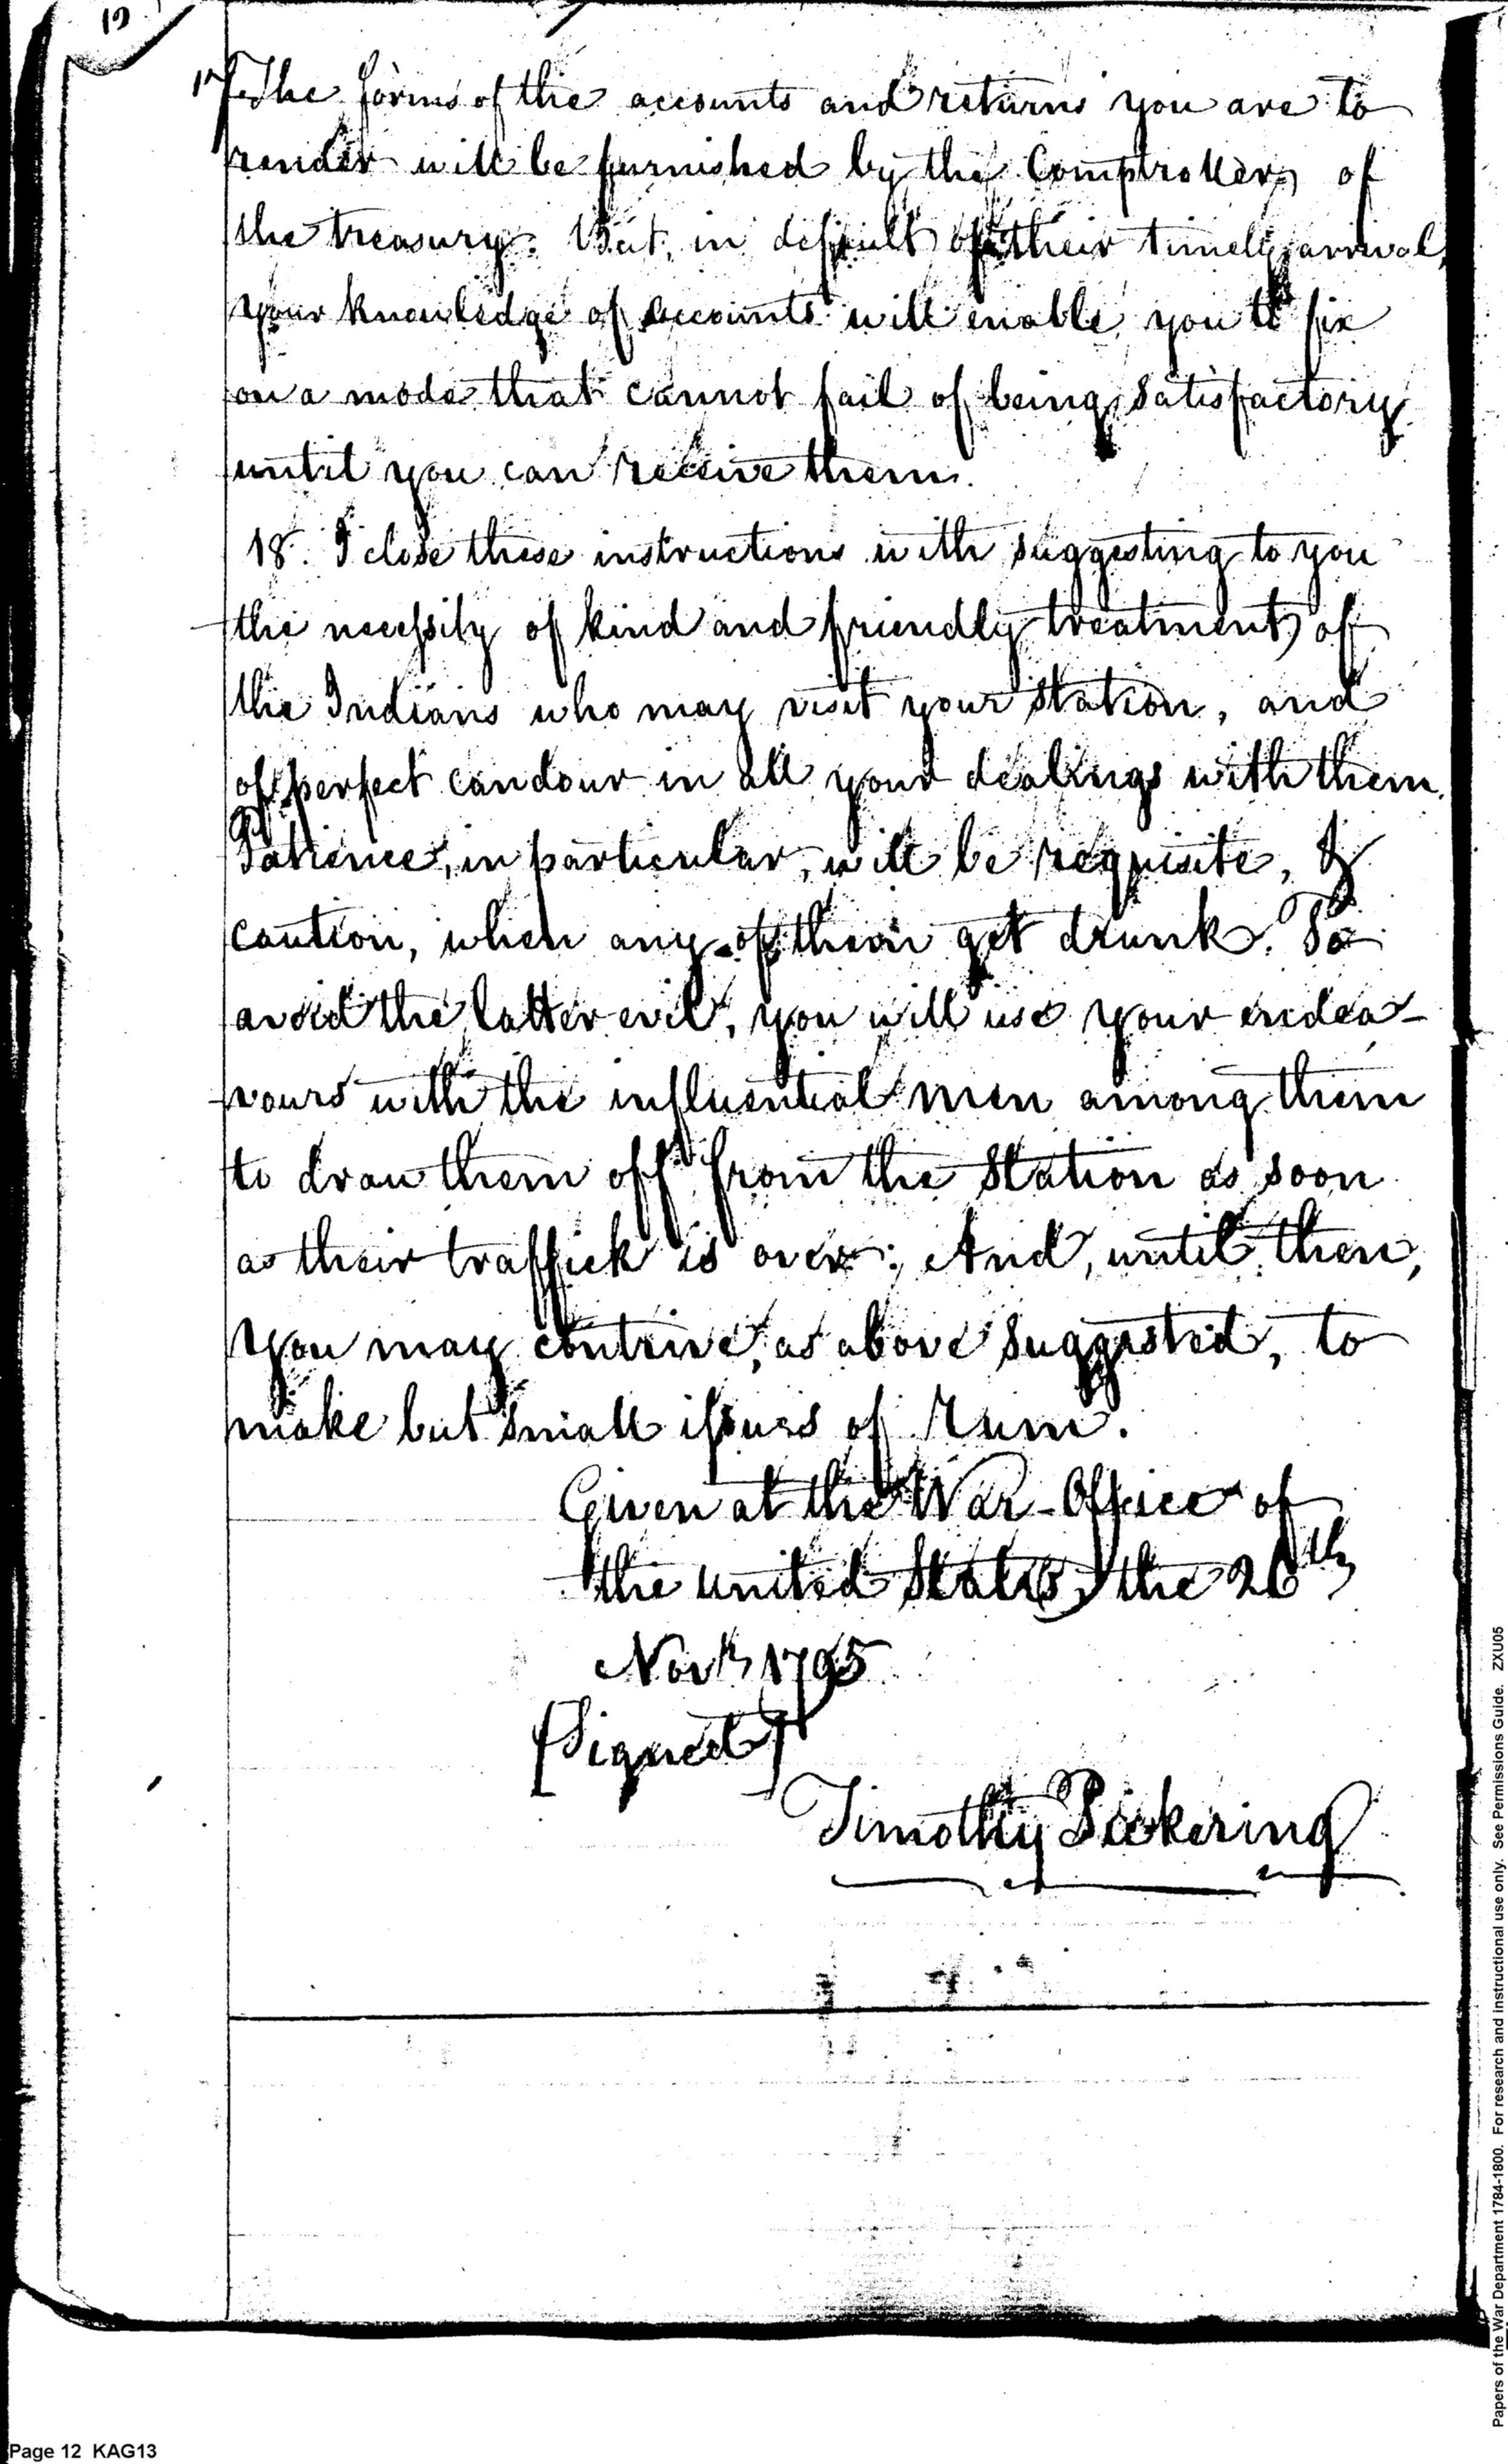 17. The forms of the accounts and returns you are to
render will be furnished by the Comptroller of
the treasury. But, in default of their timely arrival,
your knowledge of accounts will enable you to fix
on a mode that cannot fail of being satisfactory
until you can receive them.
18. I close these instructions with suggesting to you
the necessity of kind and friendly treatment of
the Indians who may visit your station, and
of perfect candour in all your dealings with them.
Patience, in particular, will be requisite, &
caution, when any of them get drunk. To
avoid the latter evil, you will use your endea-
vours with the influential men among them
to draw them off from the Station as soon
as their traffick is over; And, until then,
you may contrive, as above suggested, to
make but small issues of rum.
Given at the War-Office of
the united States, the 26th
Novr 1795
(Signed)
Timothy Pickering
Page 12 KAG13
Papers of the War Department 1784-1800. For research and instructional use only. See Permissions Guide. ZXU05